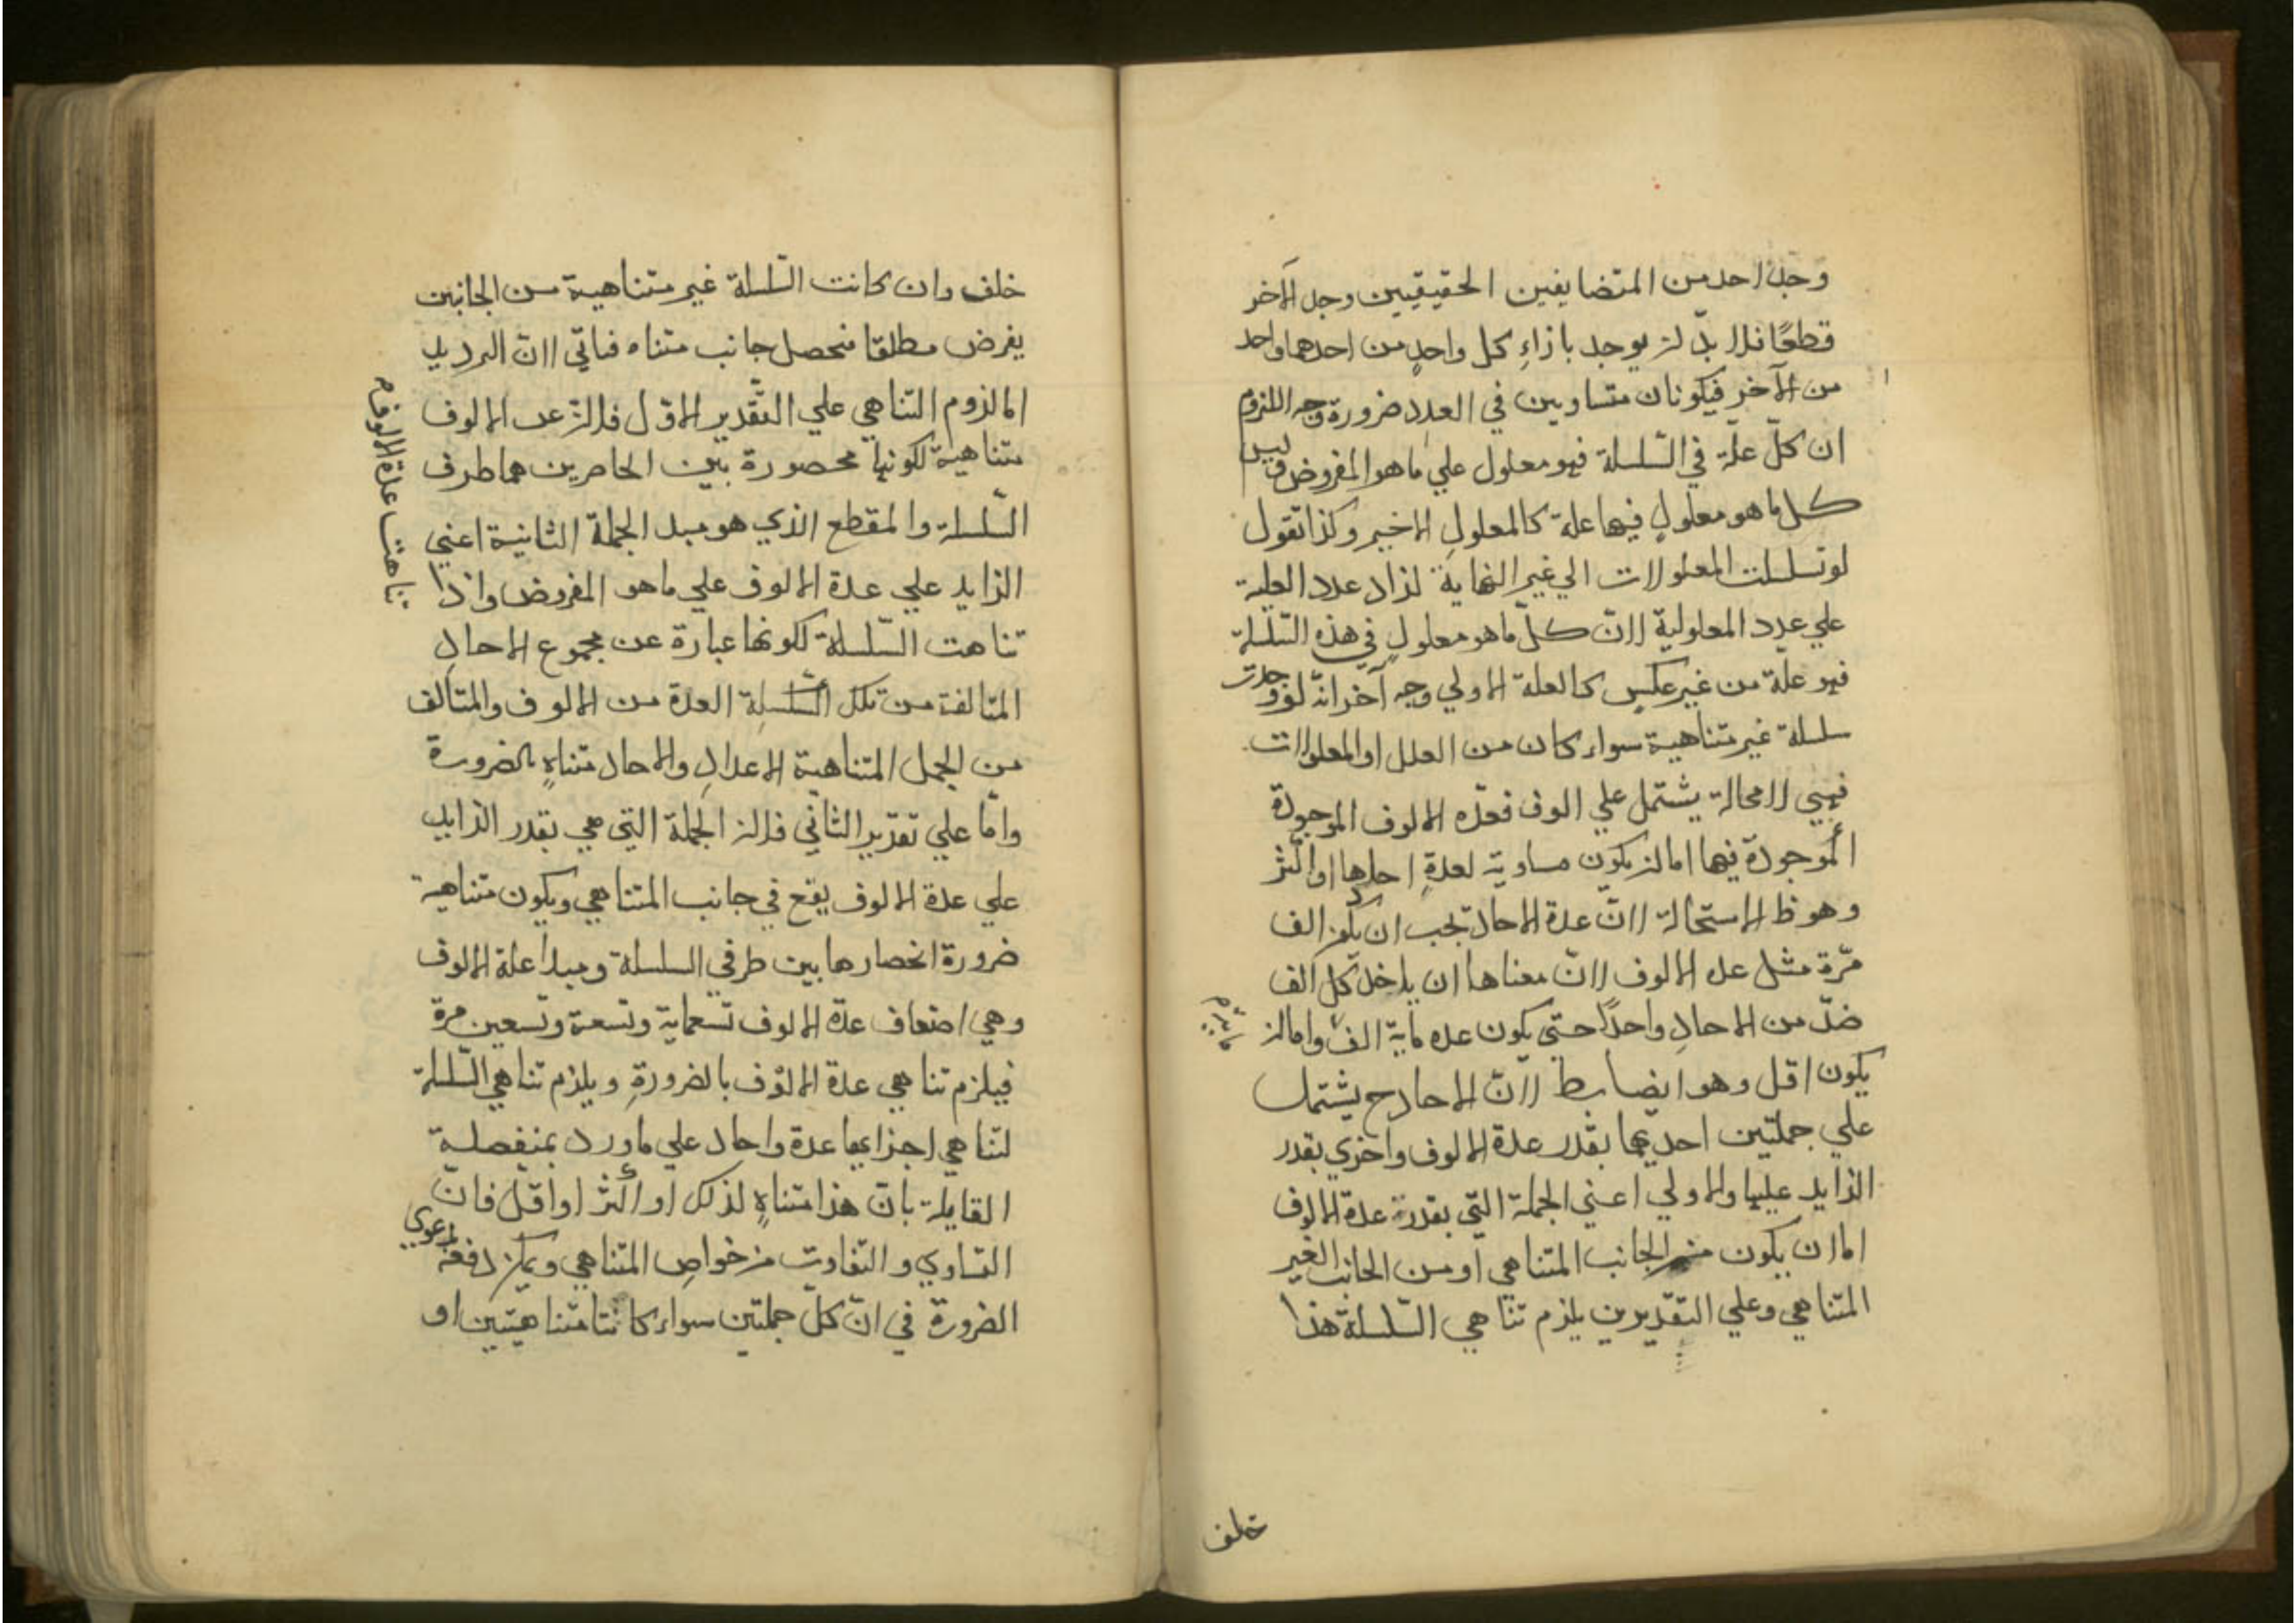 وجد احد من المتضايفين الحقيقيين وجد الآخر
قطعًا فلا بدّ لن يوجد بازاءِ كل واحدٍ من احدهما واحد
من الآخر فيكونان متساويين في العدد ضرورة وجه اللزوم
ان كلّ علّة في السّلسلة فهو معلول علي ماهو المفروض وليس
كل ما هو معلولٍ فيها علة كالمعلولِ الاخير وكذا تقول
لو تسلسلت المعلولات الي غير النهاية لزاد عدد العلية
علي عدد المعلولية لانّ كلّ ما هو معلولٍ في هذه السّلسلة
فهو علّة من غير عكسٍ كالعلة الاولي وجه آخر انّه لو وجدت
سلسلة غير متناهية سواء كان من العلل او المعلولات
فهي لا محالة يشتمل علي الوف فعدّه الالوف الموجودة
الموجودة فيها اما لن يكون مساوية لعدةِ احادها او اكثر
وهو ظ الاستحالة لانّ عدة الاحاد يجب ان يكون الف
مرّة مثل عده الالوف لانّ معناها ان ياخذ كل الف
من الاحادِ واحدًا حتي يكون عده ماية الف واما لن
يكون اقل وهو ايضا بط لانّ الاحاد ح يشتمل
علي جملتين احديهما بقدر عدة الالوف واخري بقدر
الزايد عليها والاولي اعني الجملة التّي بقدر عدة الالوف
اما ان يكون من الجانب المتناهي او من الجانب الغير
المتناهي وعلي التقديرين يلزم تناهي السّلسلة هذا
خلف
خلف وان كانت السّلسلة غير متناهية من الجانبين
يفرض مطلقا فحصل جانب متناه فياتي الانّ الترديد
اما لزوم التناهي علي التّقدير الاوّل فلان عدد الالوف
متناهية لكونها محصورة بين الحاصرين هما طرف
السّلسلة والمقطع الذي هو مبدء الجملة الثانية اعني
الزايد علي عدة الالوف علي ماهو المفروض واذا
تناهت عدة الالوف
تناهت السّلسلة لكونها عبارة عن مجموع الاحادِ
المتالفة من تلك السّلسلة العدة من الالوف والمتالف
من الجمل المتناهية الاعدادِ والاحاد متناهٍ بالضرورة
وامّا علي تقدير الثاني فلان الجملة التي هي بقدر الزايد
علي عدة الالوف يقع في جانب المتناهي ويكون متناهية
ضرورة انحصارها بين طرفي السلسلة ومبدأ عدة الالوف
وهي اضعاف عدة الالوف تسعماية وتسعة وتسعين مرة
فيلزم تناهي عدة الالوف بالضرورةِ ويلزم تناهي السّلسلة
لتناهي اجزايها عدة واحاد علي ما ورد بمنفصلة
القايلة بانّ هذا متناهٍ لذلك او اكثر او اقلّ فانّ
التساوي والتفاوت من خواصِ المتناهي ويمكن دفعه بدعوي
الضرورة في انّ كلّ جملتين سواء كانتا متناهيتين او